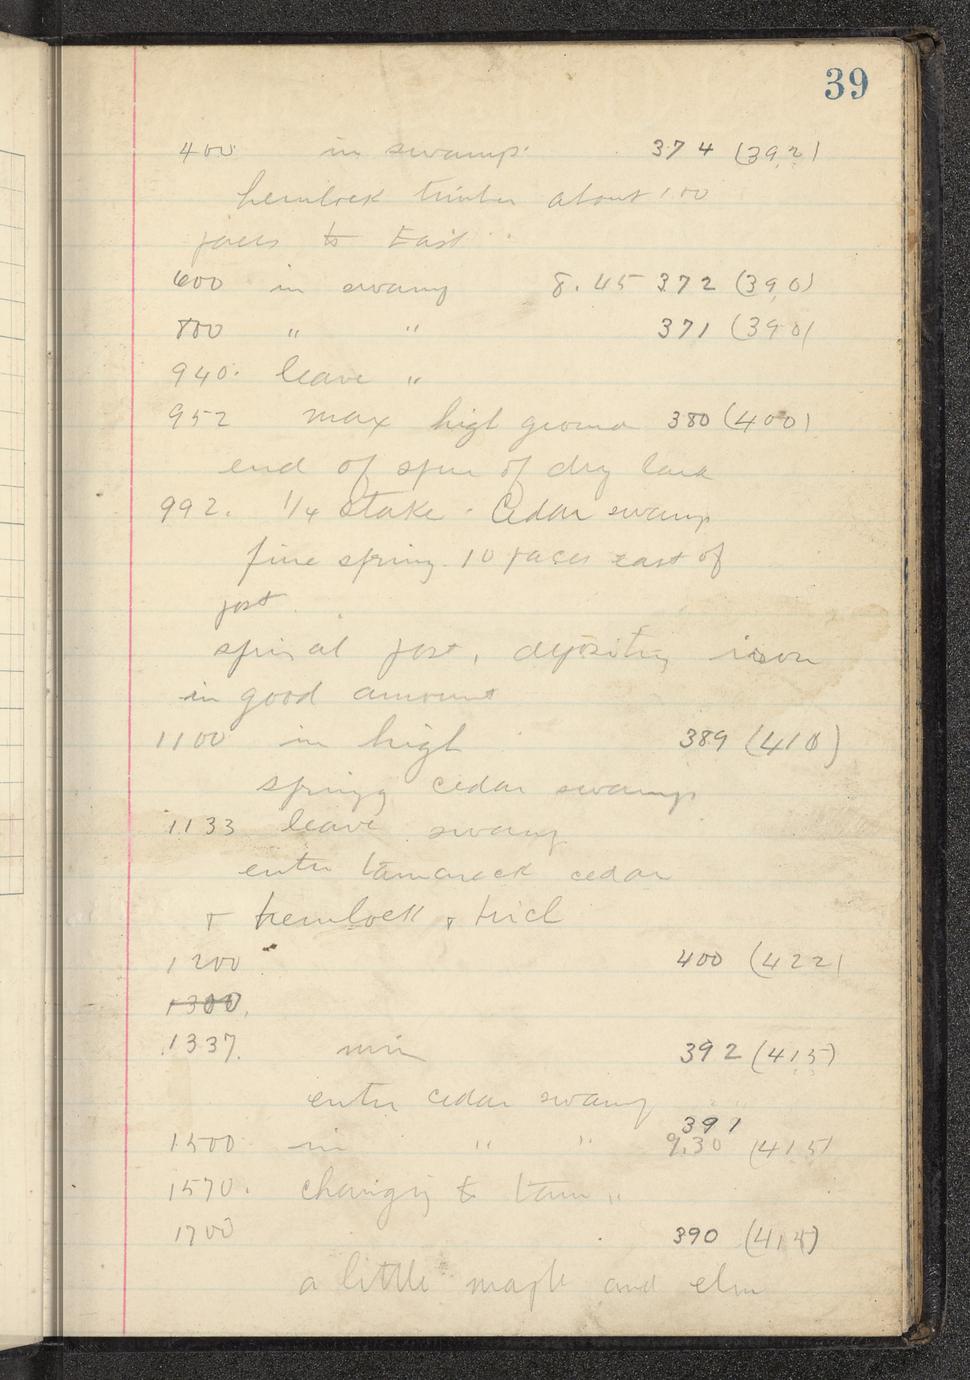 39
400 in swamp. 374 (392)
hemlock timber about 100
paces to East
600 in swamp 8.45 372 (390)
800 " " 371 (390)
940. leave "
952 max high ground 380 (400)
end of spur of dry land
992. 1/4 stake. Cedar swamp
fine spring 10 paces east of
post
spring at post, depositing iron
in good amount
1100 in high 389 (410)
springy cedar swamp
1133 leave swamp
enter tamarack cedar
+ hemlock + birch
1200 400 (422)
1300.
1337. min 392 (415)
enter cedar swamp
391
1500 in " " 9.30 (415)
1570. changing to tam "
1700 390 (414)
a little maple and elm